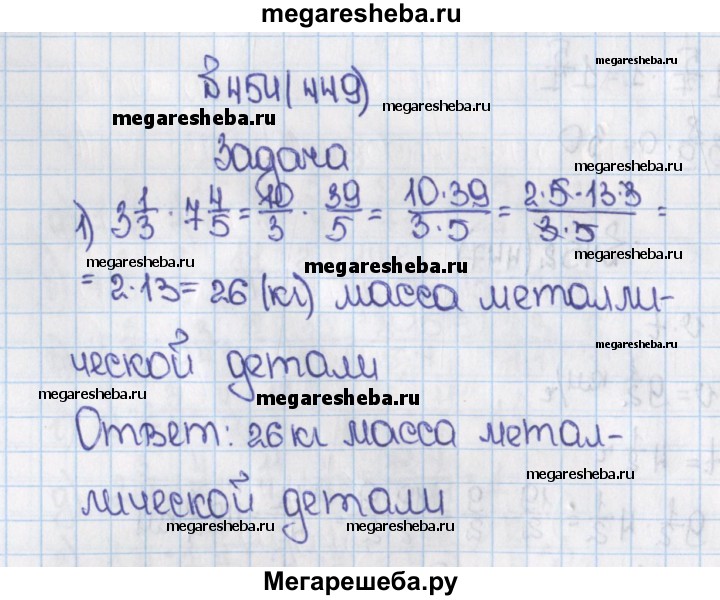 megaresheba.ru
megaresheba.ru
№ 454 (449)
megaresheba.ru
megaresheba.ru
Задача
megaresheba.ru
1) 3 1/3 · 7 4/5 = 10/3 · 39/5 = 10·39/3·5 = 2·5·13·3/3·5 =
megaresheba.ru
megaresheba.ru
= 2·13 = 26 (кг) масса металли-
ческой детали
megaresheba.ru
megaresheba.ru
megaresheba.ru
Ответ: 26 кг масса метал-
megaresheba.ru
лической детали
megaresheba.ru
megaresheba.ru
Мегарешеба.ру